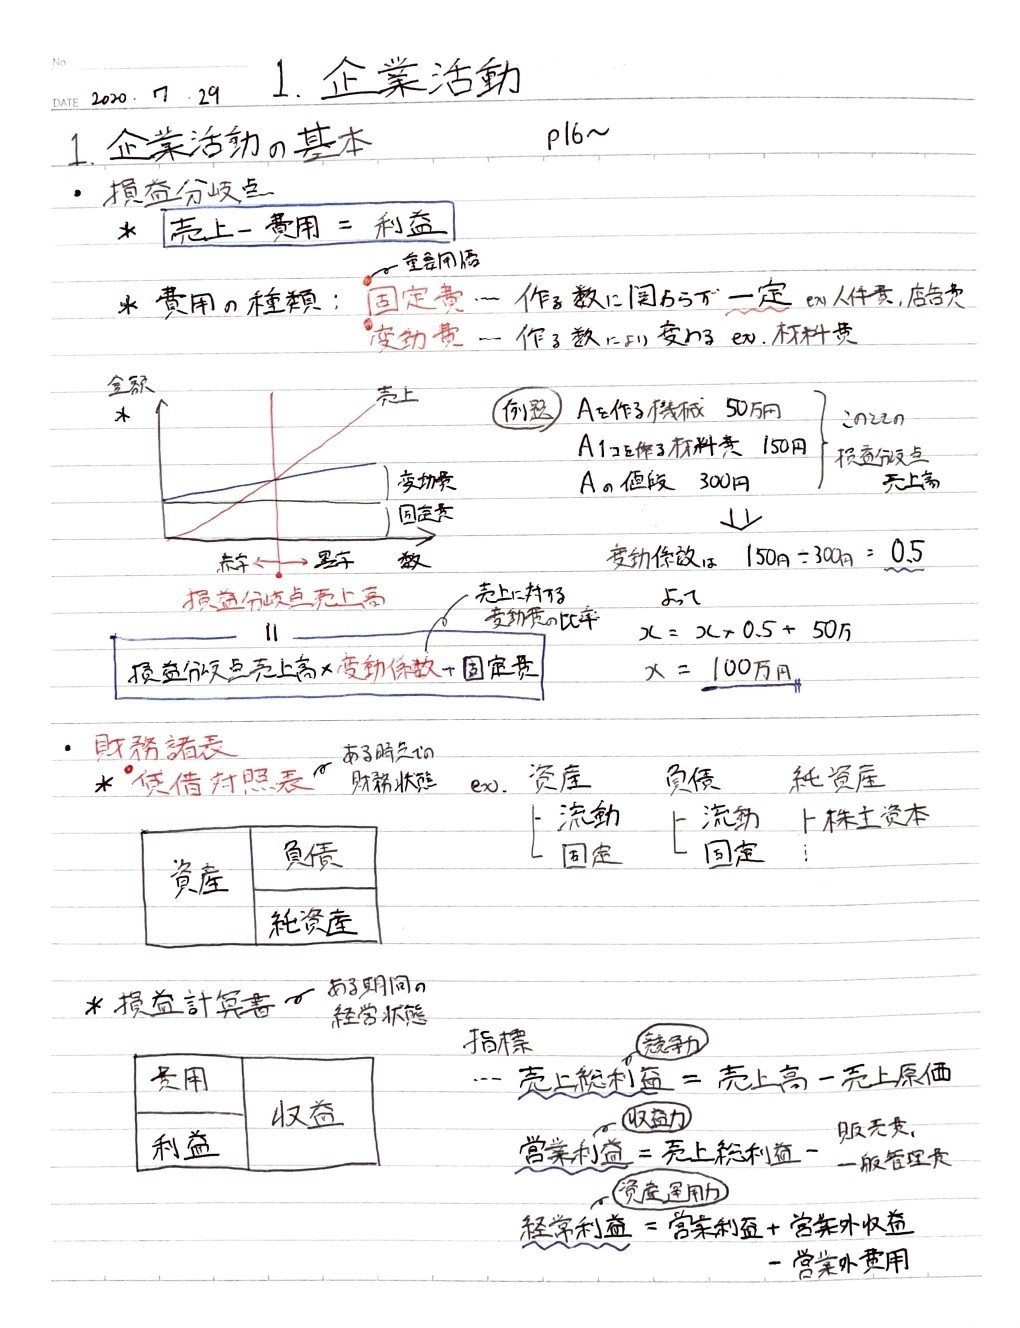 No
DATE 2020 . 7 . 29
1. 企業活動
1. 企業活動の基本 p16~
・損益分岐点
* 売上 - 費用 = 利益
重要用語
* 費用の種類: 固定費 … 作る数に関わらず一定 ex 人件費, 広告費
変動費 … 作る数により変わる ex. 材料費
金額
*
売上
変動費
固定費
赤字 ← → 黒字 数
損益分岐点売上高
=
売上に対する
変動費の比率
損益分岐点売上高 × 変動係数 + 固定費
例題 Aを作る機械 50万円
A1コを作る材料費 150円
Aの値段 300円
このときの
損益分岐点
売上高
⇓
変動係数は 150円 ÷ 300円 = 0.5
よって
x = x × 0.5 + 50万
x = 100万円
・財務諸表
* 貸借対照表 ある時点での
財務状態
ex. 資産 負債 純資産
流動 流動 株主資本
固定 固定 ⋮
資産 負債
純資産
* 損益計算書 ある期間の
経営状態
費用
利益
収益
指標 競争力
… 売上総利益 = 売上高 - 売上原価
収益力
営業利益 = 売上総利益 - 販売費,
一般管理費
資産運用力
経常利益 = 営業利益 + 営業外収益
- 営業外費用